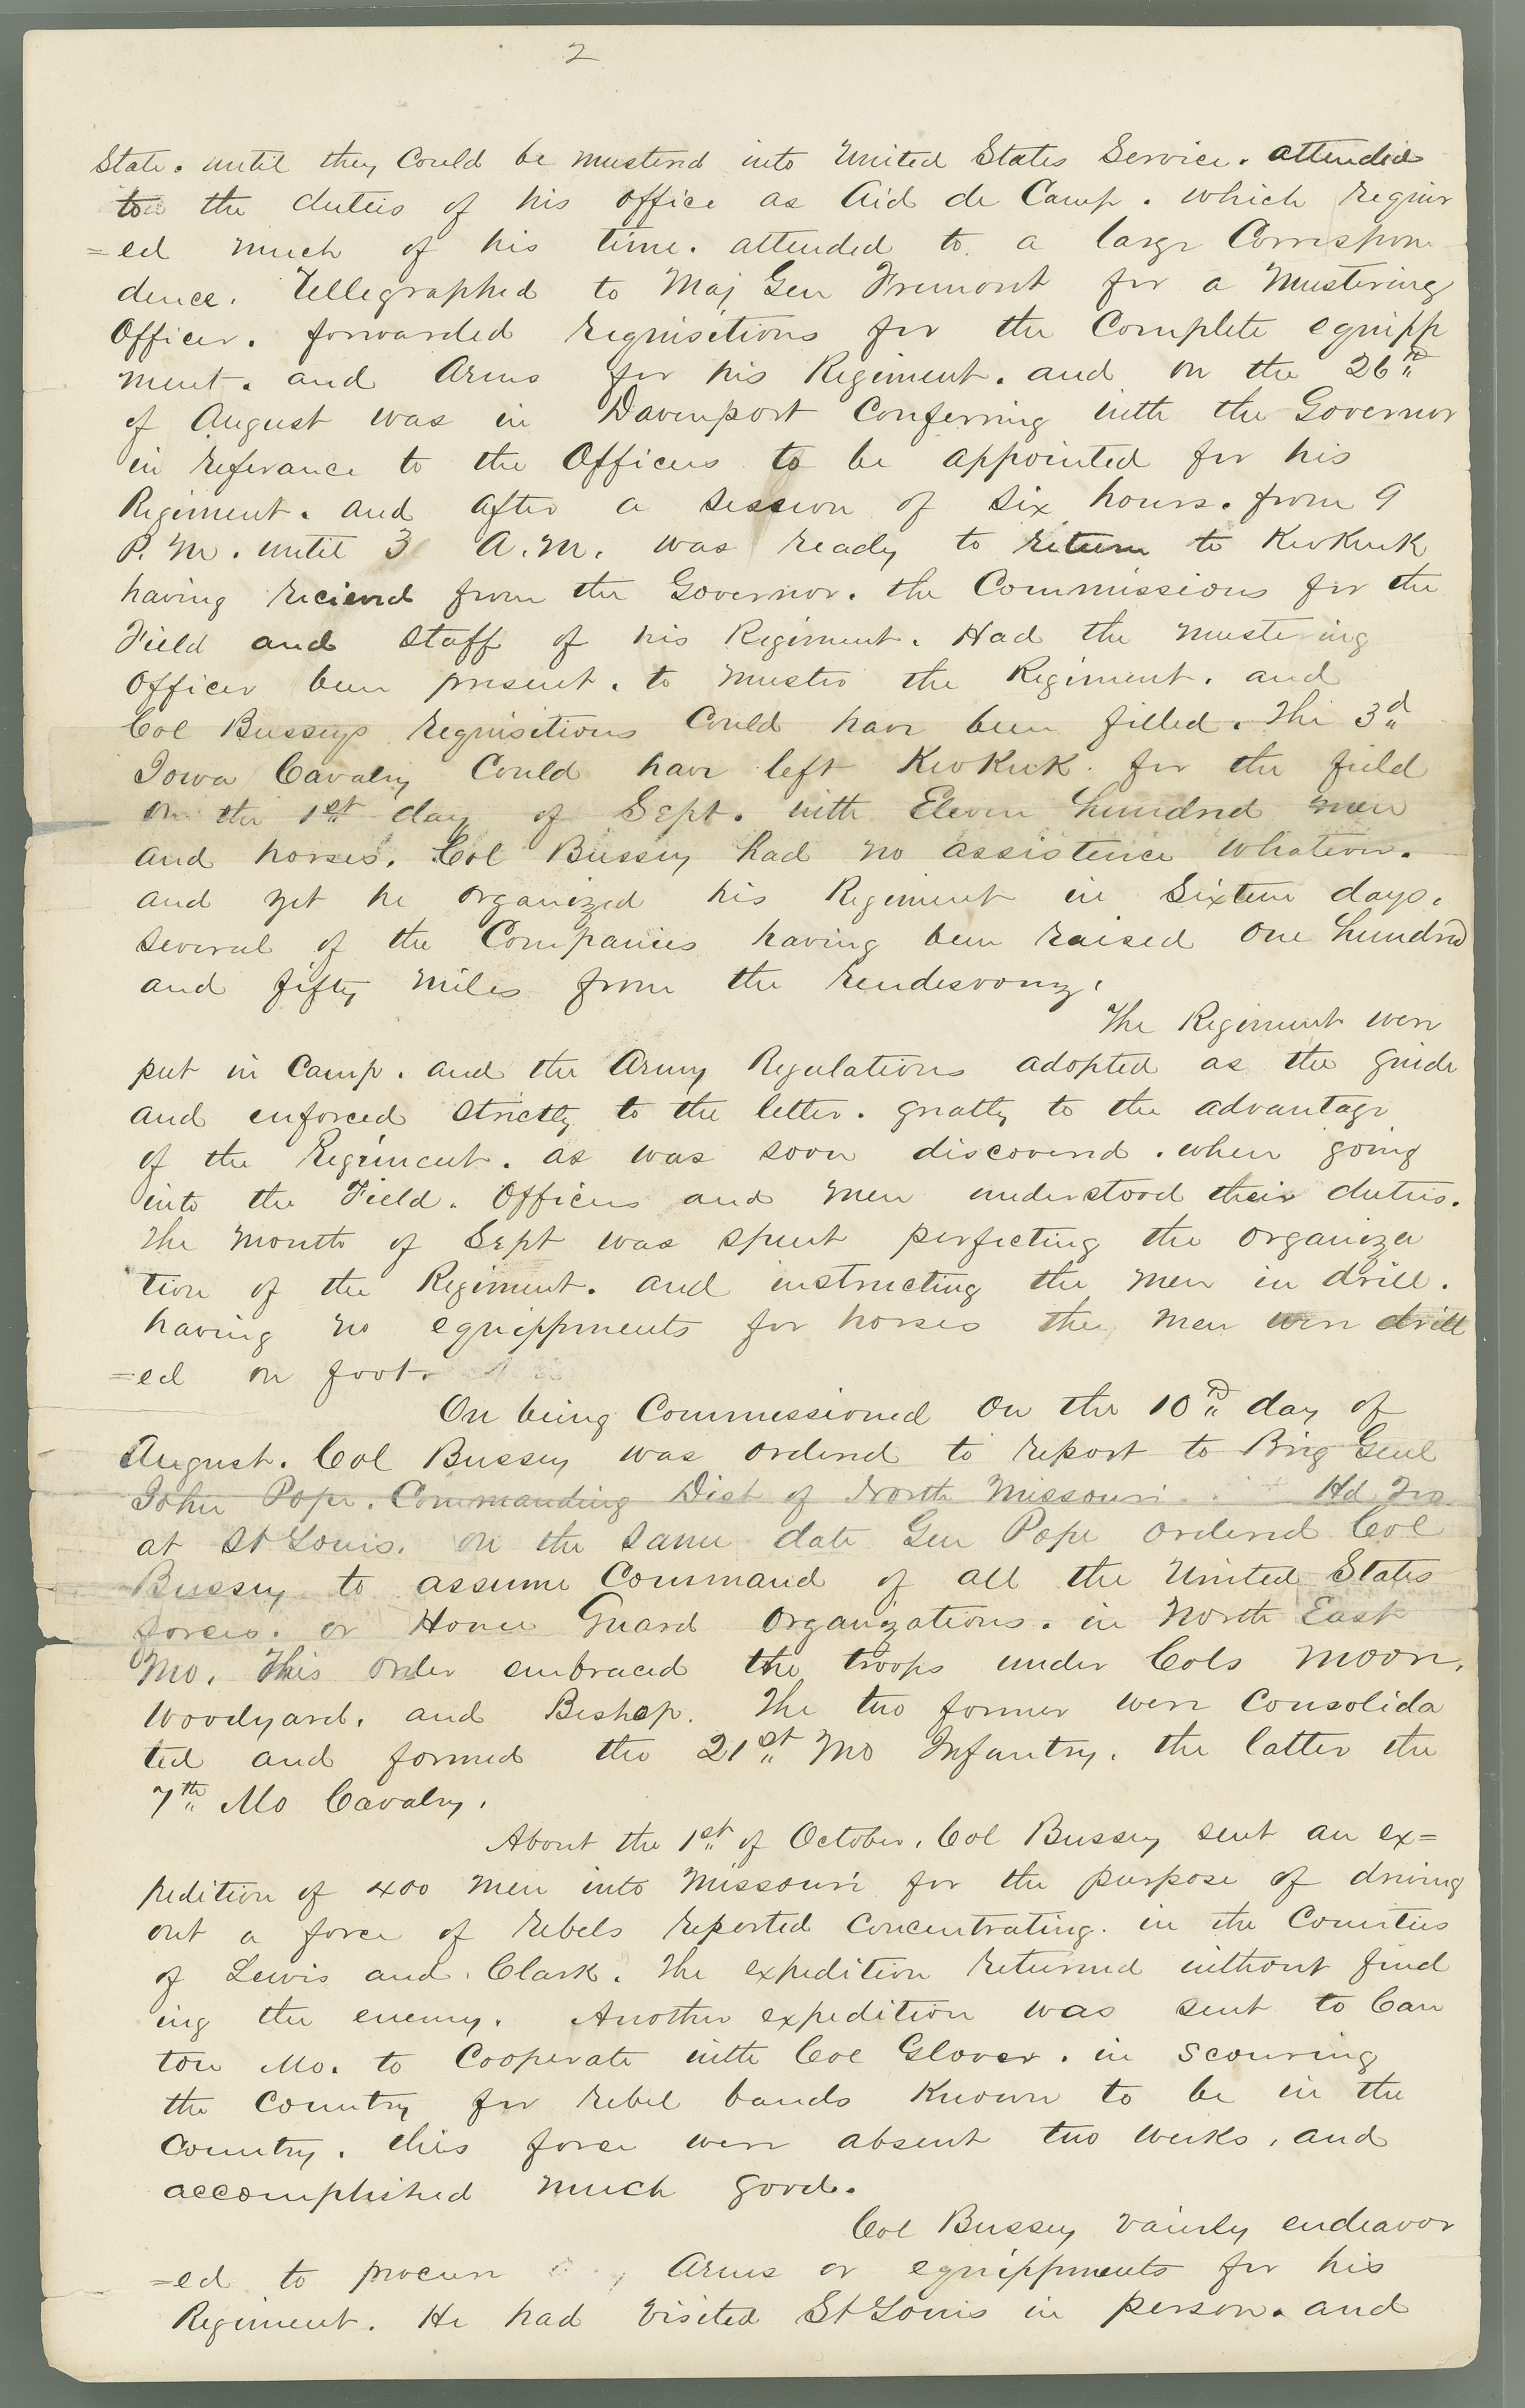 2
State. until they Could be musterd into United States Service. attended
to the duties of his office as Aid de Camp. which requir
=ed much of his time. attended to a large Correspon
dence. Tellegraphed to Maj Gen Fremont for a Mustering
Officer. forwarded requisitions for the Complete equipp
ment. and Arms for his Regiment. and on the 26th
of August was in Davenport Conferring with the Governor
in referance to the Officers to be appointed for his
Regiment. and after a session of six hours. from 9
P.M. until 3 A.M. was ready to return to KeoKuk
having recieved from the Governor. the Commissions for the
Field and Staff of his Regiment. Had the mustering
Officer been present. to muster the Regiment. and
Col Busseys requisitions Could have been filled. The 3d
Iowa Cavalry Could have left KeoKuk for the field
on the 1st day of Sept. with Eleven hundred men
and horses. Col Bussey had no assistence whatever.
and yet he organized his Regiment in Sixteen days.
several of the Companies having been raised One hundred
and fifty miles from the rendesvouz.
The Regiment were
put in Camp. and the Army Regulations adopted as the guide
and enforced strictly to the letter. greatly to the advantage
of the Regiment. as was soon discovered. when going
into the Field. Officers and men understood their duties.
The month of Sept was spent perfecting the organiza
tion of the Regiment. and instructing the men in drill.
having no equippments for horses the men were drill
=ed on foot.
On being Commissioned on the 10th day of
August. Col Bussey was ordered to report to Brig Genl
John Pope. Commanding Dist of North Missouri Hd Qrs
at St Louis. On the same date Gen Pope ordered Col
Bussey to assume Command of all the United States
forces. or Home Guard Organizations. in North East
Mo. This order embraced the troops under Cols Moore,
Woodyard. and Bishop. The two former were Consolida
ted and formed the 21st Mo Infantry. the latter the
7th Mo Cavalry.
About the 1st of October. Col Bussey sent an ex=
pedition of 400 men into Missouri for the purpose of driving
out a force of rebels reported Concentrating. in the Counties
of Lewis and Clark. The expedition returned without find
ing the enemy. Another expedition was sent to Can
ton Mo. to Cooperate with Col Glover. in scouring
the Country for rebel bands Known to be in the
Country. this force were absent two weeks, and
accomplished much good.
Col Bussey vainly endeavor
=ed to procure Arms or equippments for his
Regiment. He had visited St Louis in person. and